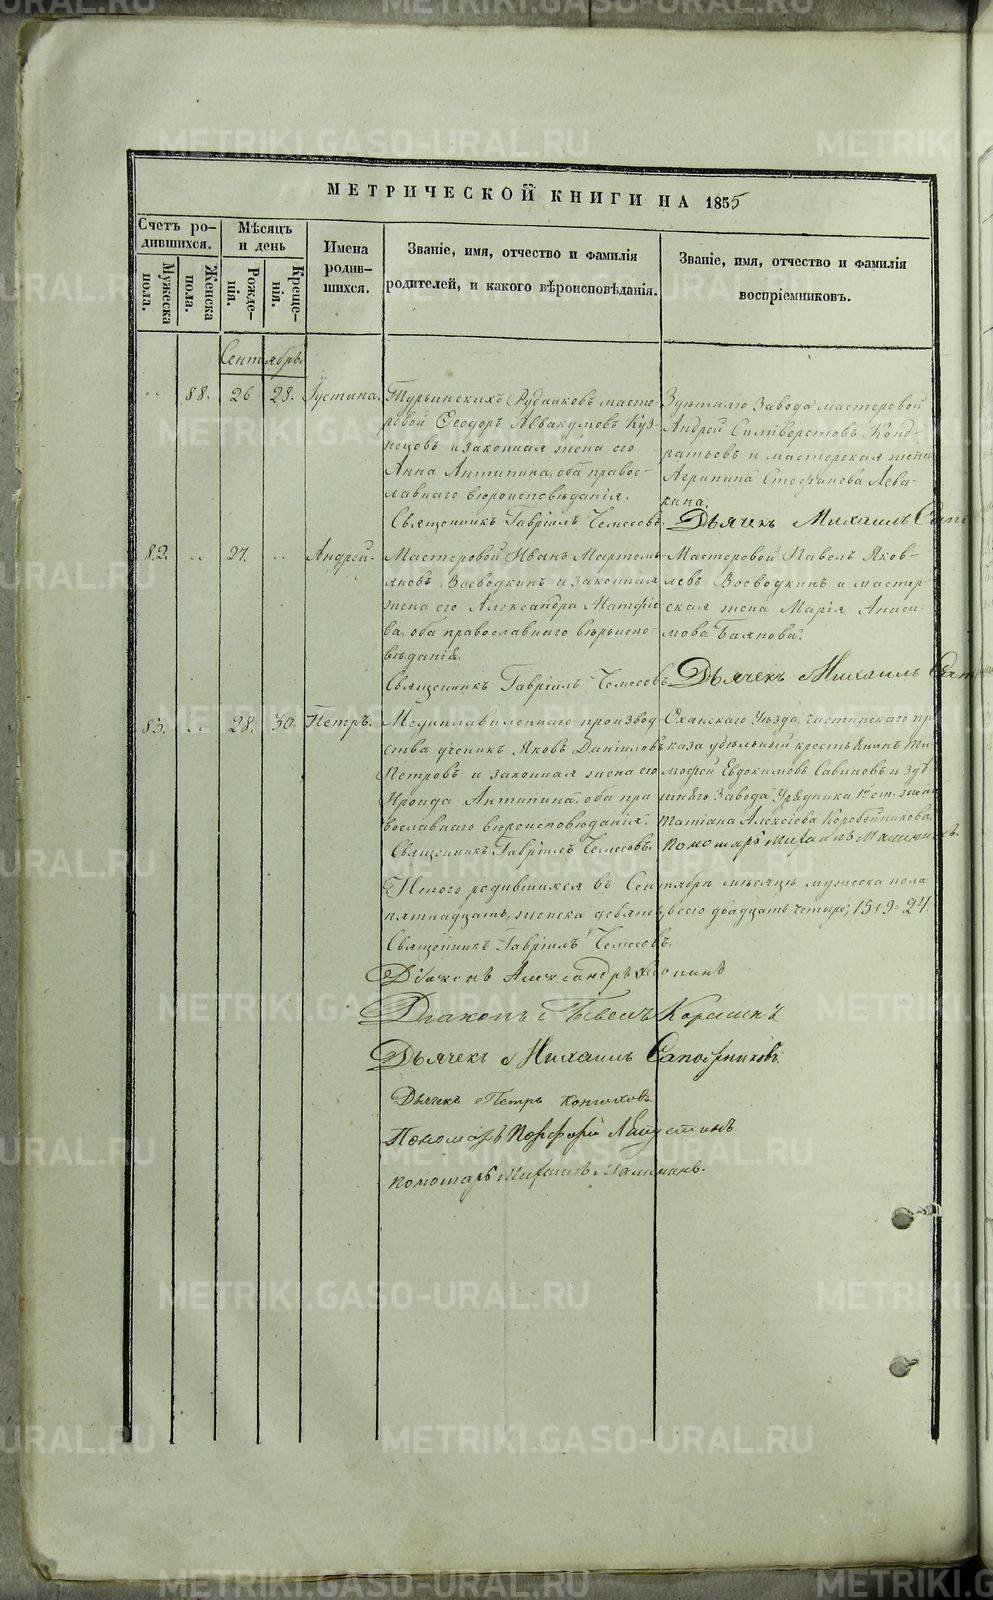 МЕТРИЧЕСКОЙ КНИГИ НА 1855
Счетъ ро-
дившихся.
Мужеска
пола.
Женска
пола.
Мѣсяцъ
и день
Рожде-
нія.
Креще-
нія.
Имена
родив-
шихся.
Званіе, имя, отчество и фамилія
родителей, и какого вѣроисповѣданія.
Званіе, имя, отчество и фамилія
воспріемниковъ.
Сентябрь.
88. 26 28. Іустина.
Турьинскихъ Рудниковъ масте-
ровой Ѳеодоръ Аввакумовъ Куз-
нецовъ и законная жена его
Анна Антипина, оба правос-
лавнаго вѣроисповѣданія.
Священникъ Гавріилъ Чемесовъ.
Здѣшняго Завода мастеровой
Андрей Силиверстовъ Конд-
ратьевъ и мастерская жена
Агрипина Стефанова Лева-
кина.
Дьячекъ Михаилъ
82. 27. Андрей.
Мастеровой Иванъ Мартемь-
яновъ Воеводкинъ и законная
жена его Александра Матфіе-
ва, оба православнаго вѣроиспо-
вѣданія.
Священникъ Гавріилъ Чемесовъ
Мастеровой Павелъ Яков-
левъ Воеводкинъ и мастер-
ская жена Марія Аниси-
мова Баянова.
Дьячекъ Михаилъ
83. 28. 30. Петръ.
Медиплавиленнаго производ-
ства ученикъ Яковъ Даніиловъ
Петровъ и законная жена его
Ироида Антипина, оба пра-
вославнаго вѣроисповѣданія.
Священникъ Гавріилъ Чемесовъ.
Оханскаго Уѣзда, частинскаго при-
каза удѣльный крестьянинъ Ти-
мофей Евдокимовъ Савиновъ и здѣ-
шняго Завода Урядника 1й ст. жена
Татіана Алексіева Коробейникова.
Пономарь Михаилъ
Итого родившихся въ Сентябрѣ мѣсяцѣ мужеска пола
пятнадцать, женска девять, всего двадцать четыре, 15+9=24.
Священникъ Гавріилъ Чемесовъ.
Діаконъ Александръ
Діаконъ Павелъ
Дьячекъ Михаилъ Сапожниковъ.
Дьячекъ Петръ Конюховъ
Пономарь Порфирій
Пономарь Михаилъ
METRIKI.GASO-URAL.RU